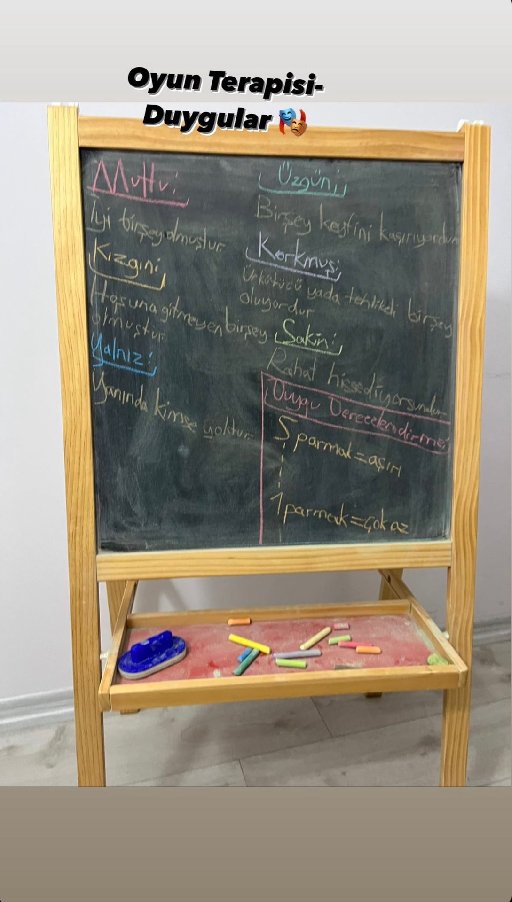 Oyun Terapisi-
Duygular
Mutlu:
İyi birşey olmuştur
Kızgın:
Hoşuna gitmeyen birşey
olmuştur
Yalnız:
Yanında kimse yoktur
Üzgün:
Birşey keyfini kaçırıyordur
Korkmuş:
Ürkütücü yada tehlikeli birşey
oluyordur
Sakin:
Rahat hissediyorsundur
Duygu Derecelendirmesi
5 parmak=aşırı
1 parmak=çok az